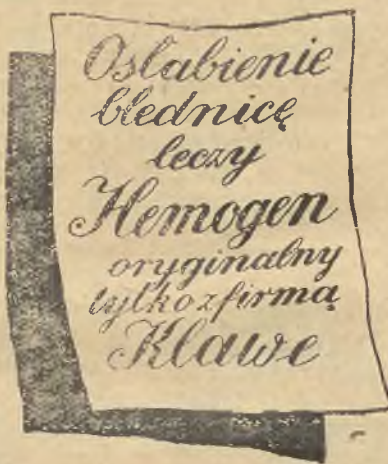 Osłabienie
blednicę
leczy
Hemogen
oryginalny
tylko z firmą
Klawe